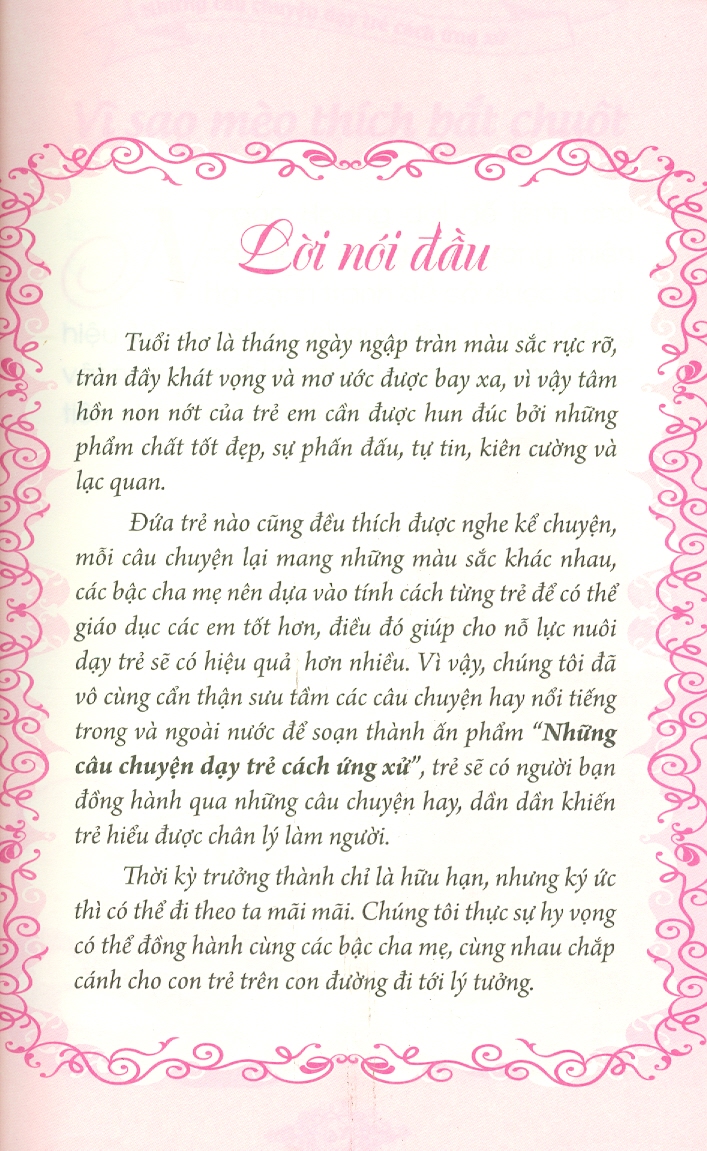 Những câu chuyện dạy trẻ cách ứng xử
Vì sao mèo thích bắt chuột
Lời nói đầu
Tuổi thơ là tháng ngày ngập tràn màu sắc rực rỡ,
tràn đầy khát vọng và mơ ước được bay xa, vì vậy tâm
hồn non nớt của trẻ em cần được hun đúc bởi những
phẩm chất tốt đẹp, sự phấn đấu, tự tin, kiên cường và
lạc quan.
Đứa trẻ nào cũng đều thích được nghe kể chuyện,
mỗi câu chuyện lại mang những màu sắc khác nhau,
các bậc cha mẹ nên dựa vào tính cách từng trẻ để có thể
giáo dục các em tốt hơn, điều đó giúp cho nỗ lực nuôi
dạy trẻ sẽ có hiệu quả hơn nhiều. Vì vậy, chúng tôi đã
vô cùng cẩn thận sưu tầm các câu chuyện hay nổi tiếng
trong và ngoài nước để soạn thành ấn phẩm “Những
câu chuyện dạy trẻ cách ứng xử”, trẻ sẽ có người bạn
đồng hành qua những câu chuyện hay, dần dần khiến
trẻ hiểu được chân lý làm người.
Thời kỳ trưởng thành chỉ là hữu hạn, nhưng ký ức
thì có thể đi theo ta mãi mãi. Chúng tôi thực sự hy vọng
có thể đồng hành cùng các bậc cha mẹ, cùng nhau chắp
cánh cho con trẻ trên con đường đi tới lý tưởng.